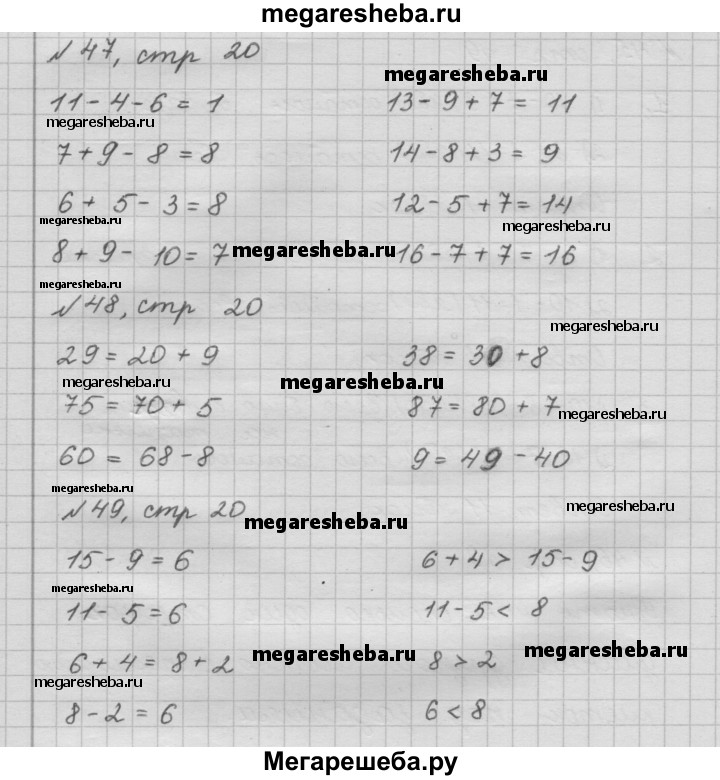 megaresheba.ru
№47, стр 20
megaresheba.ru
11 - 4 - 6 = 1 13 - 9 + 7 = 11
megaresheba.ru
7 + 9 - 8 = 8 14 - 8 + 3 = 9
6 + 5 - 3 = 8 12 - 5 + 7 = 14
megaresheba.ru megaresheba.ru
8 + 9 - 10 = 7 megaresheba.ru 16 - 7 + 7 = 16
megaresheba.ru
№48, стр 20
megaresheba.ru
29 = 20 + 9 38 = 30 + 8
megaresheba.ru megaresheba.ru
75 = 70 + 5 87 = 80 + 7 megaresheba.ru
60 = 68 - 8 9 = 49 - 40
megaresheba.ru
№49, стр 20 megaresheba.ru megaresheba.ru
15 - 9 = 6 6 + 4 > 15 - 9
megaresheba.ru
11 - 5 = 6 11 - 5 < 8
6 + 4 = 8 + 2 megaresheba.ru 8 > 2 megaresheba.ru
megaresheba.ru
8 - 2 = 6 6 < 8
Мегарешеба.ру